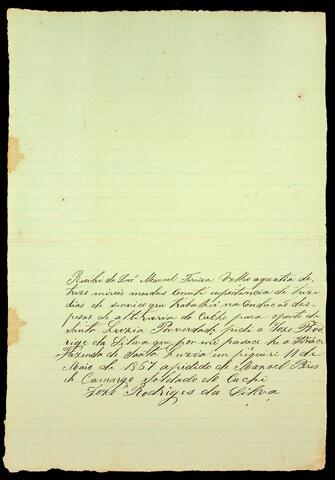 Recibi do Snr Manoel Ferira Velho aquatia de
treze mireis moedas Comfé importancia de treze
dias de servico que trabalhei na conducão das
pesas de altilharia do Cuchi para oporto de
Santa Luzia Porverdade pedi a Joze Rod
rigis da Silva que por mi pasace he a
Fazenda de Santa Luzia im piquiri 11 de
Maio de 1857 apedido de Manoel Pires
de Camargo Soldado de Cuchi
Joze Rodrigis da Silva